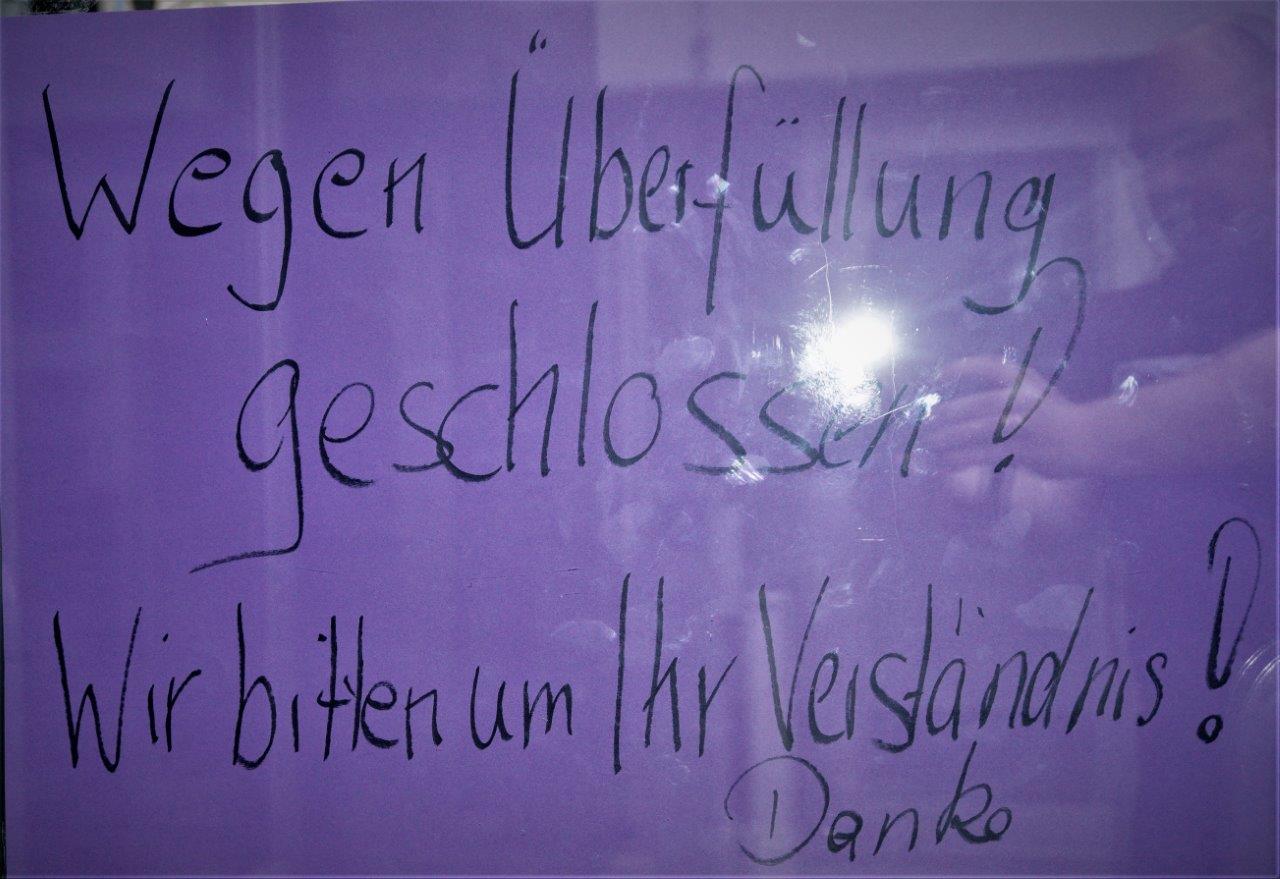 Wegen Überfüllung
geschlossen!
Wir bitten um Ihr Verständnis!
Danke